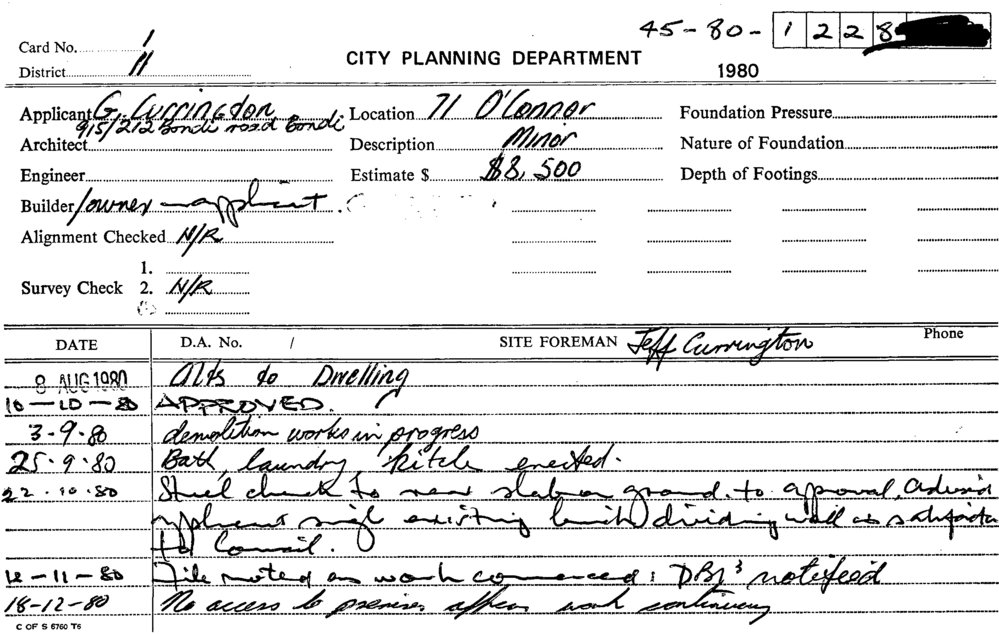 45-80-1228
Card No. 1
CITY PLANNING DEPARTMENT
District 11
1980
Applicant G. Currington Location 71 O'Connor Foundation Pressure
915/212 Bondi road Bondi
Architect Description Minor Nature of Foundation
Engineer Estimate $ $8,500 Depth of Footings
Builder/owner - applicant.
Alignment Checked N/R
1.
Survey Check 2. N/R
DATE D.A. No. / SITE FOREMAN Jeff Currington Phone
8 AUG 1980 Alts to Dwelling
10-10-80 APPROVED.
3-9-80 demolition works in progress
25.9.80 Bath, laundry, kitch erected.
22.10.80 Steel check to new slab on ground. to aproval. Advised
applicant existing dividing wall is
to Council.
12-11-80 File noted as work commenced: notified
18-12-80 No access to premises appears work continuing
C OF S 6760 T6